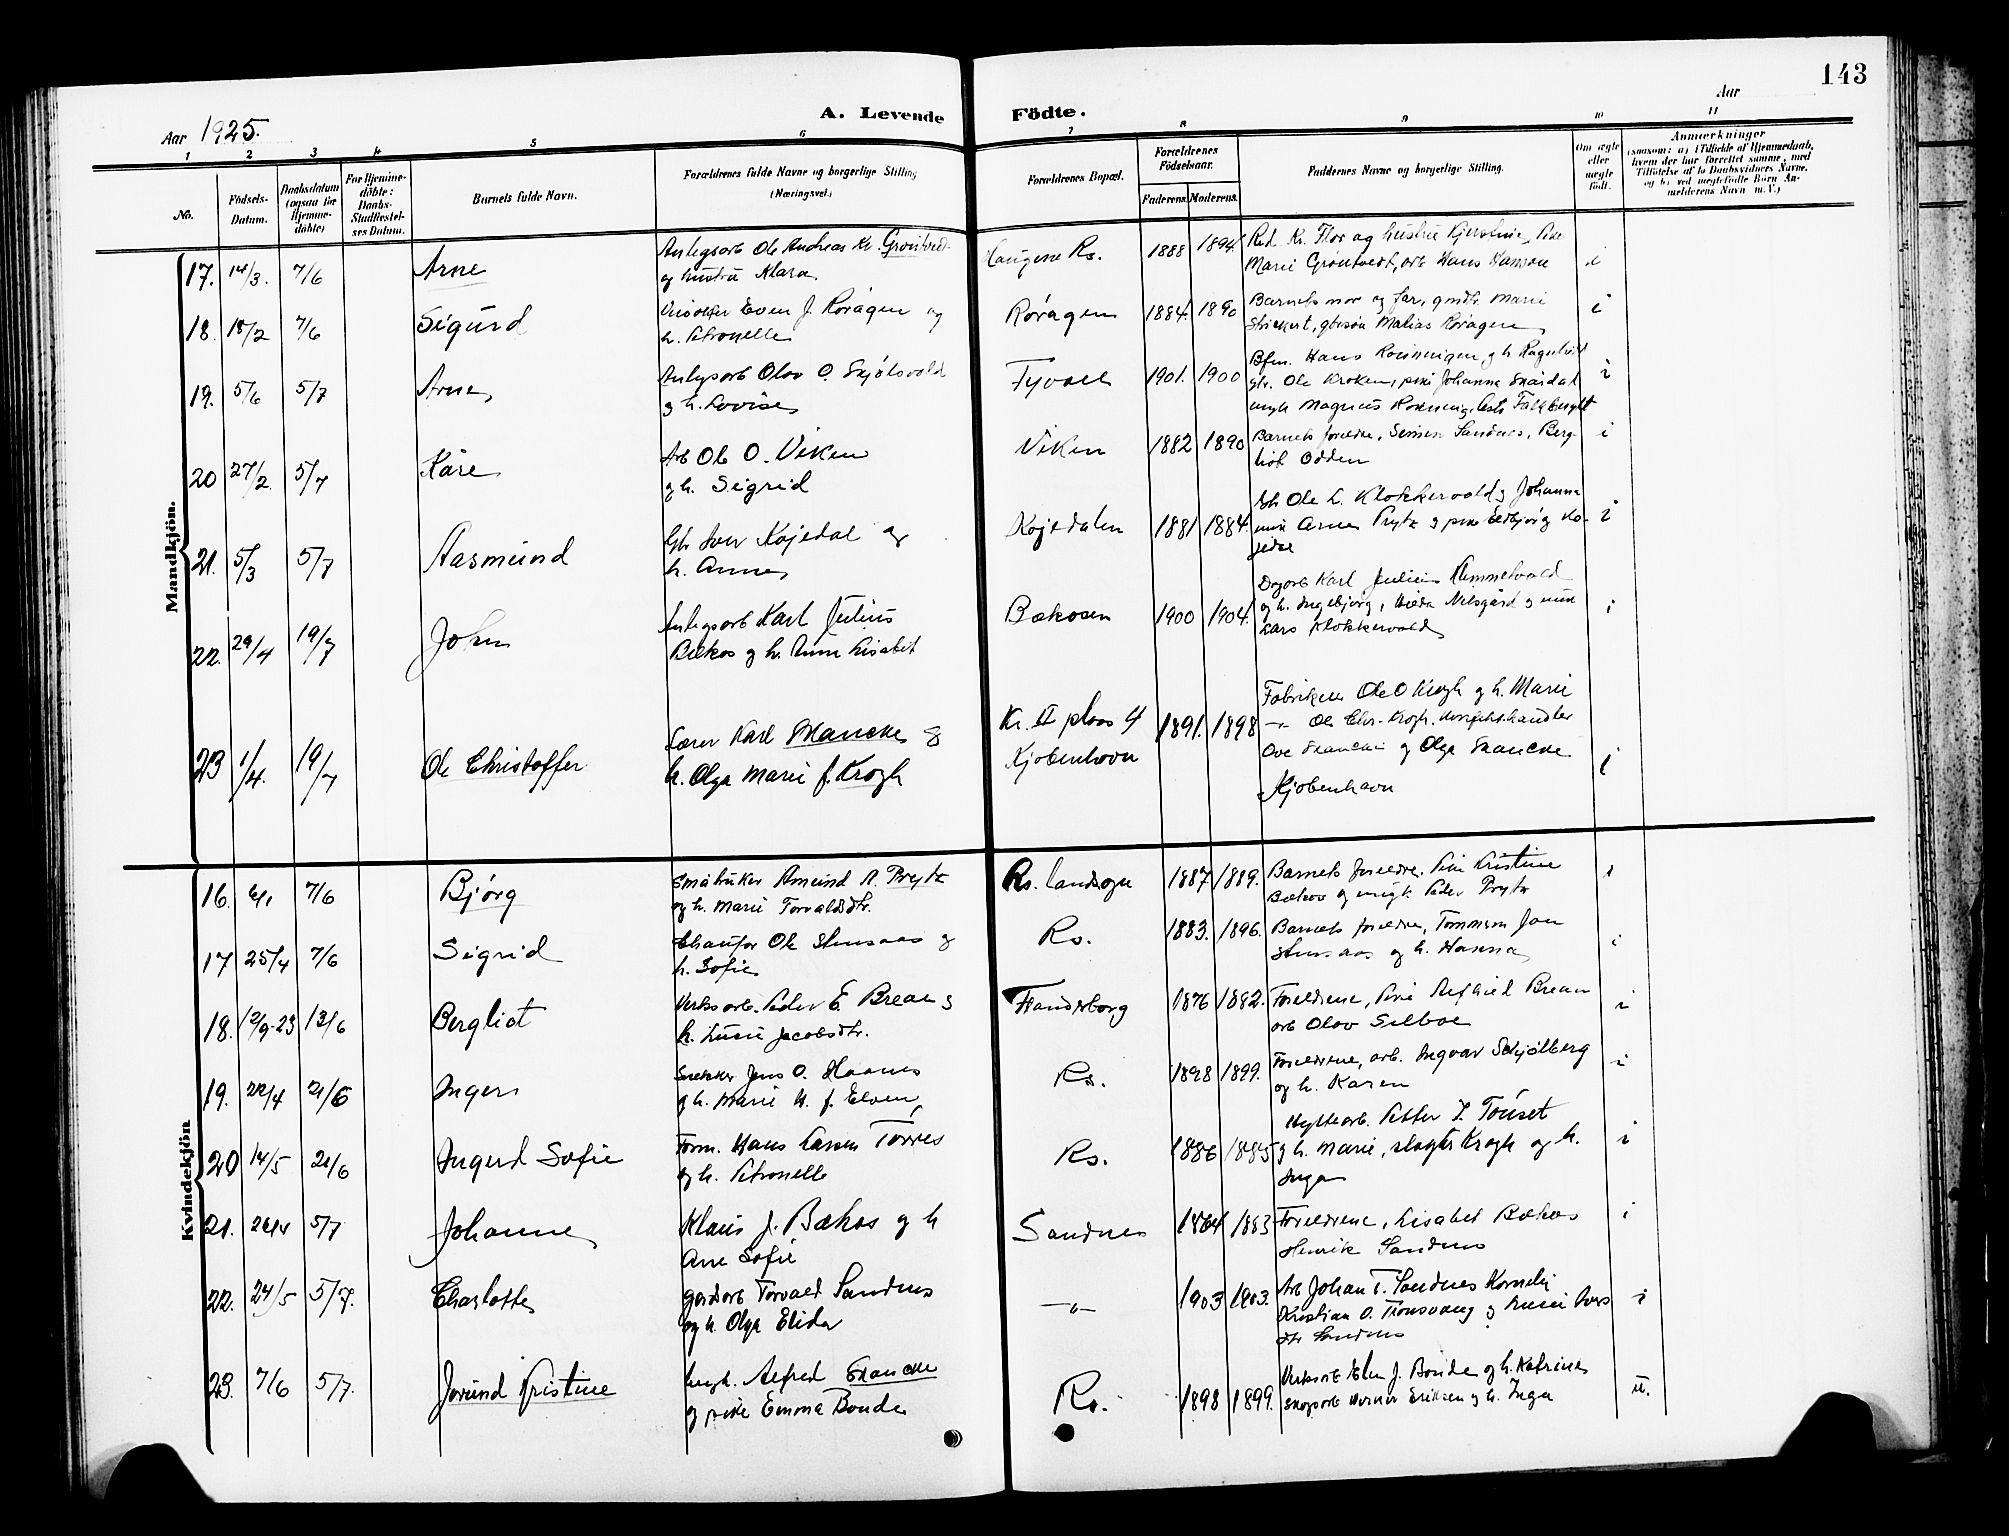 143
Aar 1925.
A. Levende Födte.
Aar
1 2 3 4 5 6 7 8 9 10 11
No.
Födsels-Datum.
Daabsdatum (ogsaa for Hjemme-döbte)
For Hjemme-döbte: Daabs-Stadfæstel-ses Datum.
Barnets fulde Navn.
Forældrenes fulde Navne og borgerlige Stilling
(Næringsvei.)
Forældrenes Bopæl.
Forældrenes Födselsaar.
Faderens. Moderens.
Faddernes Navne og borgerlige Stilling.
Om ægte eller uægte födt.
Anmærkninger
(saasom: a) i Tilfælde af Hjemmedaab, hvem der har forrettet samme, med Tilföielse af to Daabsvidners Navne, og b) ved uægtefödte Börn An-melderens Navn m. V.)
Mandkjön.
17. 14/3. 7/6 Arne
Anlegsarb Ole Andreas Kr. Grøntvedt
og hustru Klara
Haugene Rs. 1888 1894
Marie Grøntvedt, arb Hans Hanson
18. 18/2 7/6 Sigurd
Even J. Røragen og
h. Petronelle
Røragen 1884. 1890 i
Barnets mor og far, gmdtr. Marie
gbrsøn Matias Røragen
19. 5/6 5/7 Arne
Anlegsarb Olav O. Skjølsvold
og h. Lovise
Tyvoll 1901. 1900 i
Hans Rønningen, g h Ragnhild
Ole Kroken, pike Johanna Skårdal
ungk Magnus Rønning, Falkberget
20 27/2. 5/7 Kåre
Arb Ole O. Viken
og h. Sigrid
Viken 1882 1890 i
Barnets foreldre, Simen Sandnes, Berg-
liot Odden
21. 5/3 5/7 Aasmund
Gbr Iver Kojedal og
h. Anne
Kojedalen 1881 1884. i
Gbr Ole L. Klokkervold, Johanna
Arne Prytz og pike
22. 29/4 19/7 John
Anlegsarb Karl Julius
Bekos og h. Anne Lisabet
Bekosen 1900 1904. i
Karl Julius Himmelvold
og h. Ingebjørg, Hilda Nilsgård
Lars Klokkervold
23 1/4. 19/7 Ole Christoffer
Lærer Karl Skancke og
h. Olga Marie f. Krogh
Kr. II plass 4
Kjøbenhavn
1891. 1898 i
Fabrikeier Ole O Krogh og h. Marie
-"- Ole Chr. Krogh,
Ove Skancke og Olga Skancke
Kjøbenhavn
Kvindekjön
16. 7/6 Bjørg
Småbruker Amund A. Prytz
og h. Marie Torvaldsdtr.
Rs. landsogn 1887. 1889. i
Barnets foreldre, Pike Kristine
Bekos og ungk Peder Prytz
17 25/4 7/6 Sigrid
Chaufør Ole Stensaas og
h. Sofie
Rs. 1883. 1896. i
Barnets foreldre, Tømmerm Jon
Stensaas og h. Hanna
18. 12/9-23 13/6 Bergliot
Verksarb. Peder E. Brean og
h. Lucie Jacobsdtr.
Flanderborg 1876 1882. i
Foreldrene, Pike Brean
arb Olav Selboe
19. 22/4 21/6 Inger
Snekker Jens O. Haanes
og h. Marie H. f. Elven
Rs. 1898 1899. i
Foreldrene, arb. Ingvar Skjølberg
og h. Karen
20 14/5 21/6 Ingerd Sofie
Form. Hans Larsen Tørres
og h. Petronelle
Rs. 1886 1885 i
Hyttearb. Petter I. Tønset
g h. Marie, slagter Krogh og h.
Inga
21. 5/7 Johanne
Klaus J. Bekos og h
Ane Sofie
Sandnes 1883 i
Foreldrene, Lisabet Bekos
Henrik Sandnes
22. 24/5 5/7. Charlotte
gardarb Torvald Sandnes
og h. Olga Elida
-"- 1903 1903. i
Arb Johan T. Sandnes
Kristian O. Tronsvang og Ivers
dtr Sandnes
23. 7/6 5/7. Jorund Kristine
Ungk. Alfred Skancke
og pike Emma Bonde
Rs. 1898 1899. u.
Verksarb J. Bonde og h. Katrine
skogsarb Werner Eriksen og h. Inga